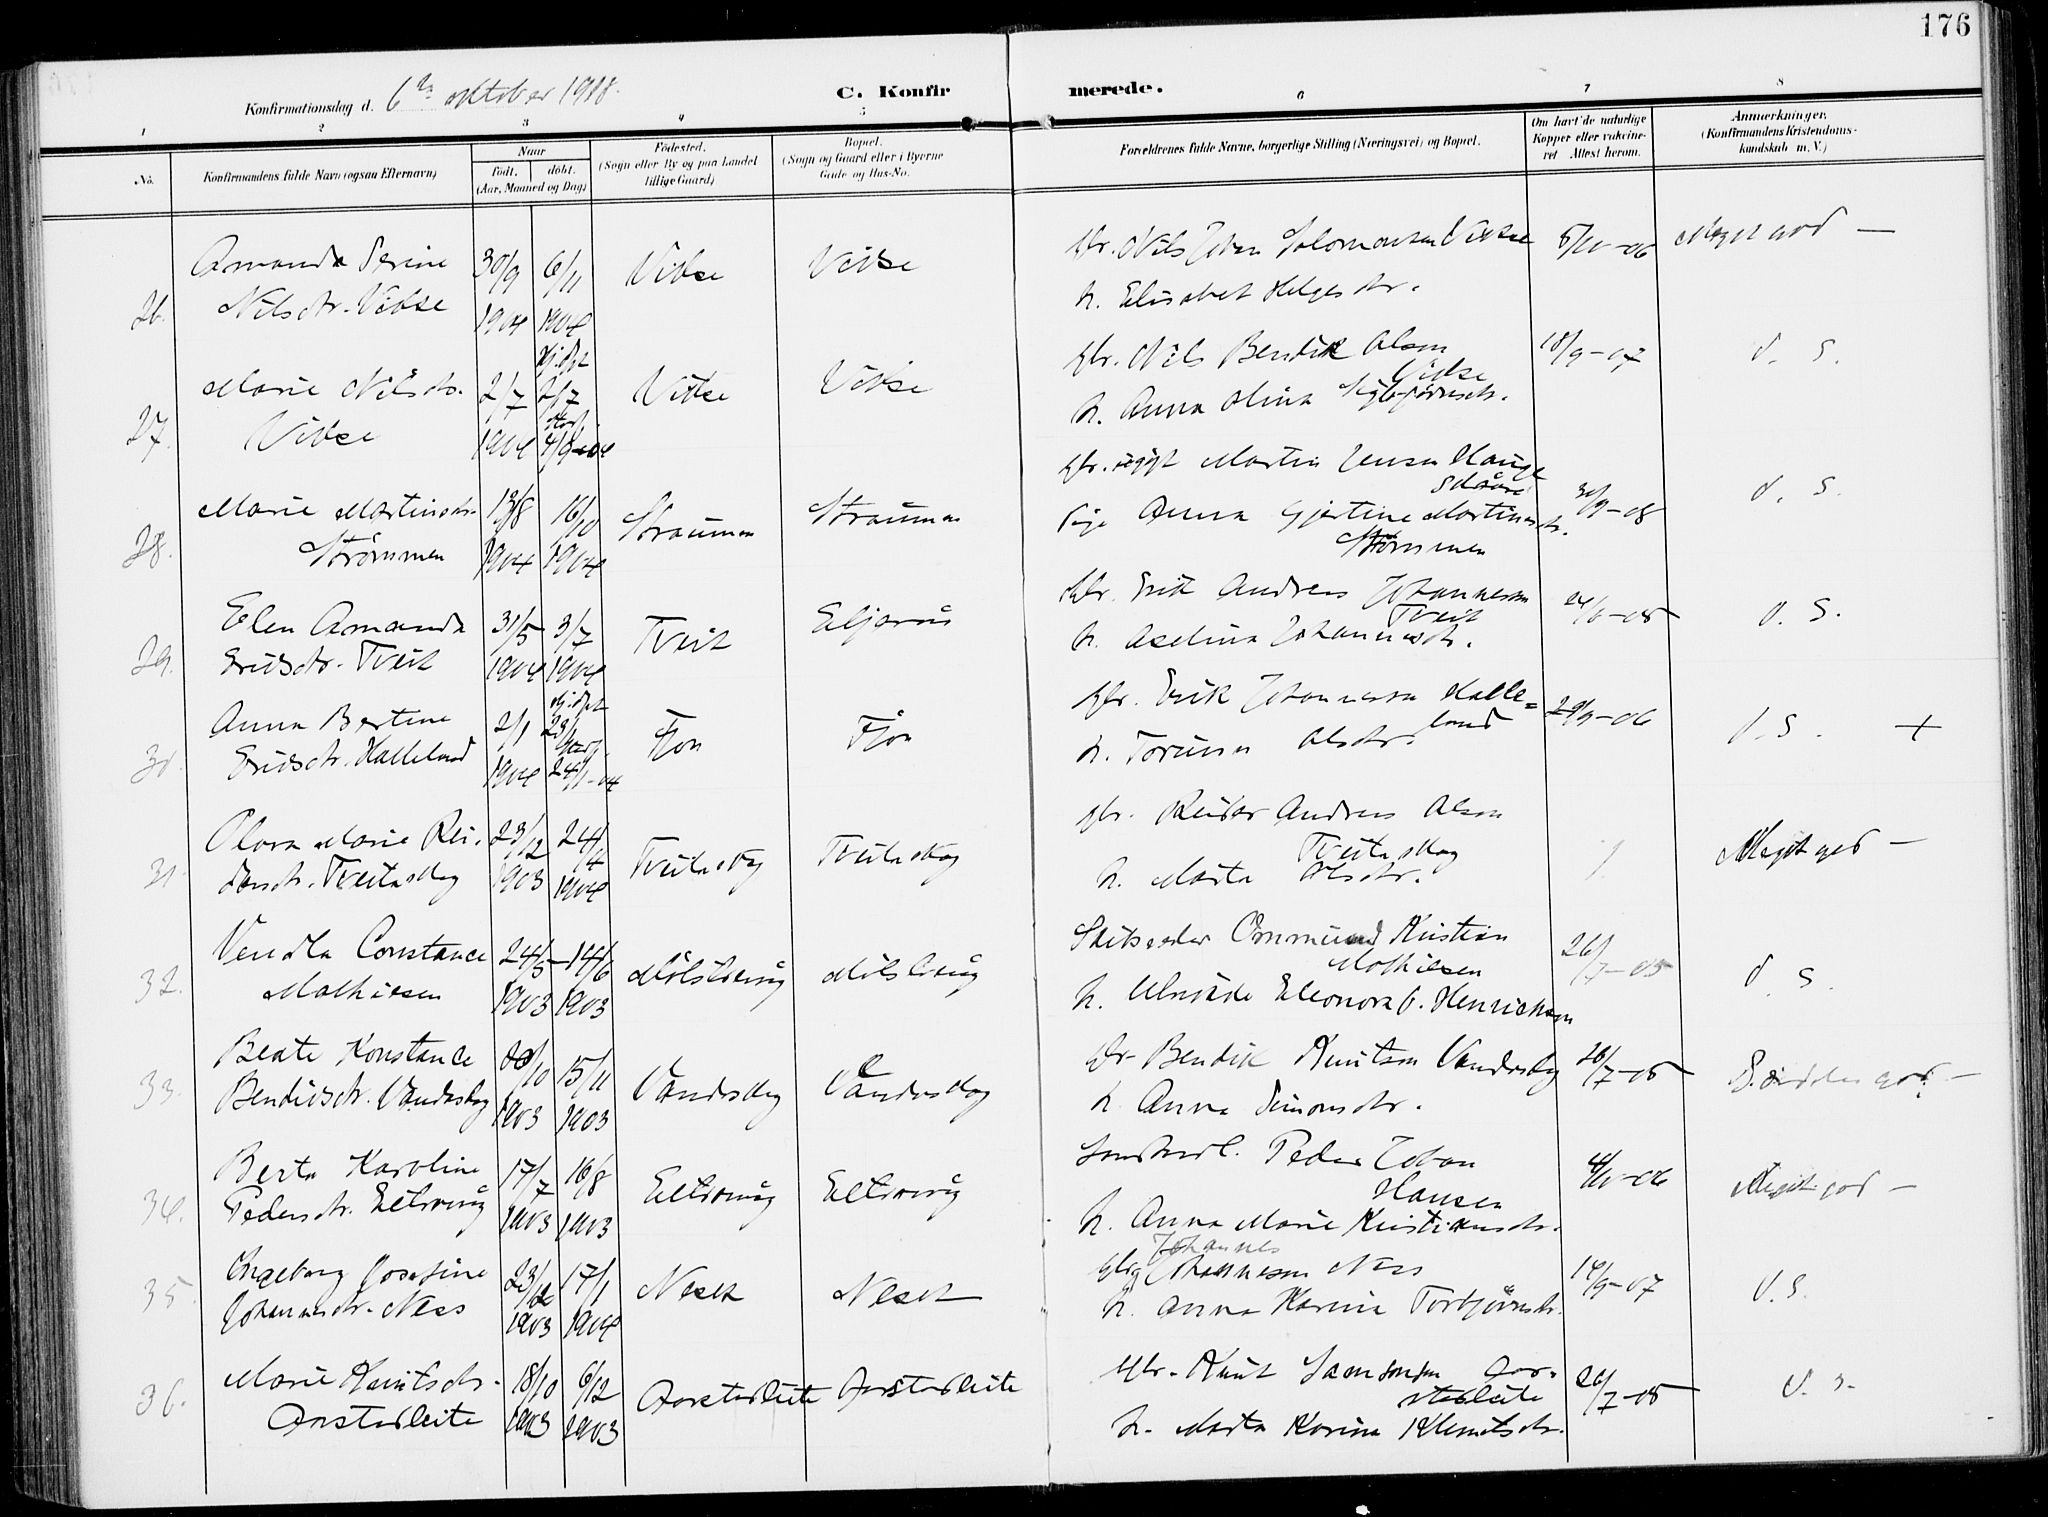 176
Konfirmationsdag d. 6te oktober 1918.
C. Konfirmerede.
1 2 3 4 5 6 7 8
No.
Konfirmandens fulde Navn (ogsaa Efternavn)
Naar
født. døbt.
(Aar, Maaned og Dag)
Fødested.
(Sogn eller By og paa Landet
tillige Gaard)
Bopæl.
(Sogn og Gaard eller i Byerne
Gade og Hus-No.
Forældrenes fulde Navne, borgerlige Stilling (Næringsvei) og Bopæl.
Om havt de naturlige
Kopper eller vakcine-
ret Attest herom.
Anmærkninger.
(Konfirmandens Kristendoms-
kundskab m. V.)
26. Amanda Serine
Nilsdtr. Vikse
30/9 1904
6/11 1904
Vikse
Vikse
gbr. Nils Johan Salomonsen Vikse
h. Elisabet Helgesdtr.
Meget god —
27. Marie Nilsdtr.
Vikse
2/7 1904
hj.døpt 2/7
4/9-04
Vikse
Vikse
gbr. Nils Bendik Olsen
Vikse
h. Anna Olina
18/9-07
d. s.
28. Marie Martinsdtr.
Strømmen
13/8 1904
16/10 1904
Straumen
Straumen
gbr. ugift Martin Jensen Hauge
Skåre
Pige Anna Gjertine Martinsdtr.
Strømmen
30/9-08
d. s.
29. Elen Amanda
Eriksdtr. Tveit
31/5 1904
3/7 1904
Tveit
gbr. Erik Andreas Johannesen
Tveit
h. Aselina Johannesdtr.
d. s.
30. Anna Bertine
Eriksdtr. Halleland
2/1 1904
hj.døpt 23/1
24/1-04
Fjon
Fjon
gbr. Erik Johannesen Halle=
land
h. Torina Olsdtr.
29/9-06
d. s. +
31. Olava Marie Rei-
darsdtr. Tveitaskog
23/12 1903
24/4 1904
Tveitaskog
Tveitaskog
gbr. Reidar Andreas Olsen
Tveitaskog
h. Marta Olsdtr.
Meget god —
32. Vendla Constance
Mathiesen
24/5 1903
14/6 1903
Mølstrevåg
Mølstrevåg
Ommund Kristian
Mathiesen
h. Eleonora O. Henriksen
26/7-05
d. s.
33. Beate Konstance
Bendiksdtr. Vandaskog
1903
15/11 1903
Vandaskog
Vandaskog
gbr. Bendik Knutsen Vandaskog
h. Anna Simonsdtr.
26/7-05
34. Berta Karoline
Pedersdtr. Eltravåg
17/7 1903
16/8 1903
Eltravåg
Eltravåg
Peder Johan
Hansen
h. Anna Marie Kristiansdtr.
Meget god —
35. Ingeborg Josefine
Johannesdtr. Ness
23/12 1903
17/1 1904
Neset
Neset
Johannes
Johannesen Ness
h. Anna Karine Torbjørnsdtr.
14/9-07
d. s.
36. Marie Knutsdtr.
Aarsterleite
18/10 1903
6/12 1903
Aarsterleite
Aarsterleite
gbr. Knut Samsonsen Aar-
sterleite
h. Marta Karina Klemetsdtr.
26/7-05
d. s.